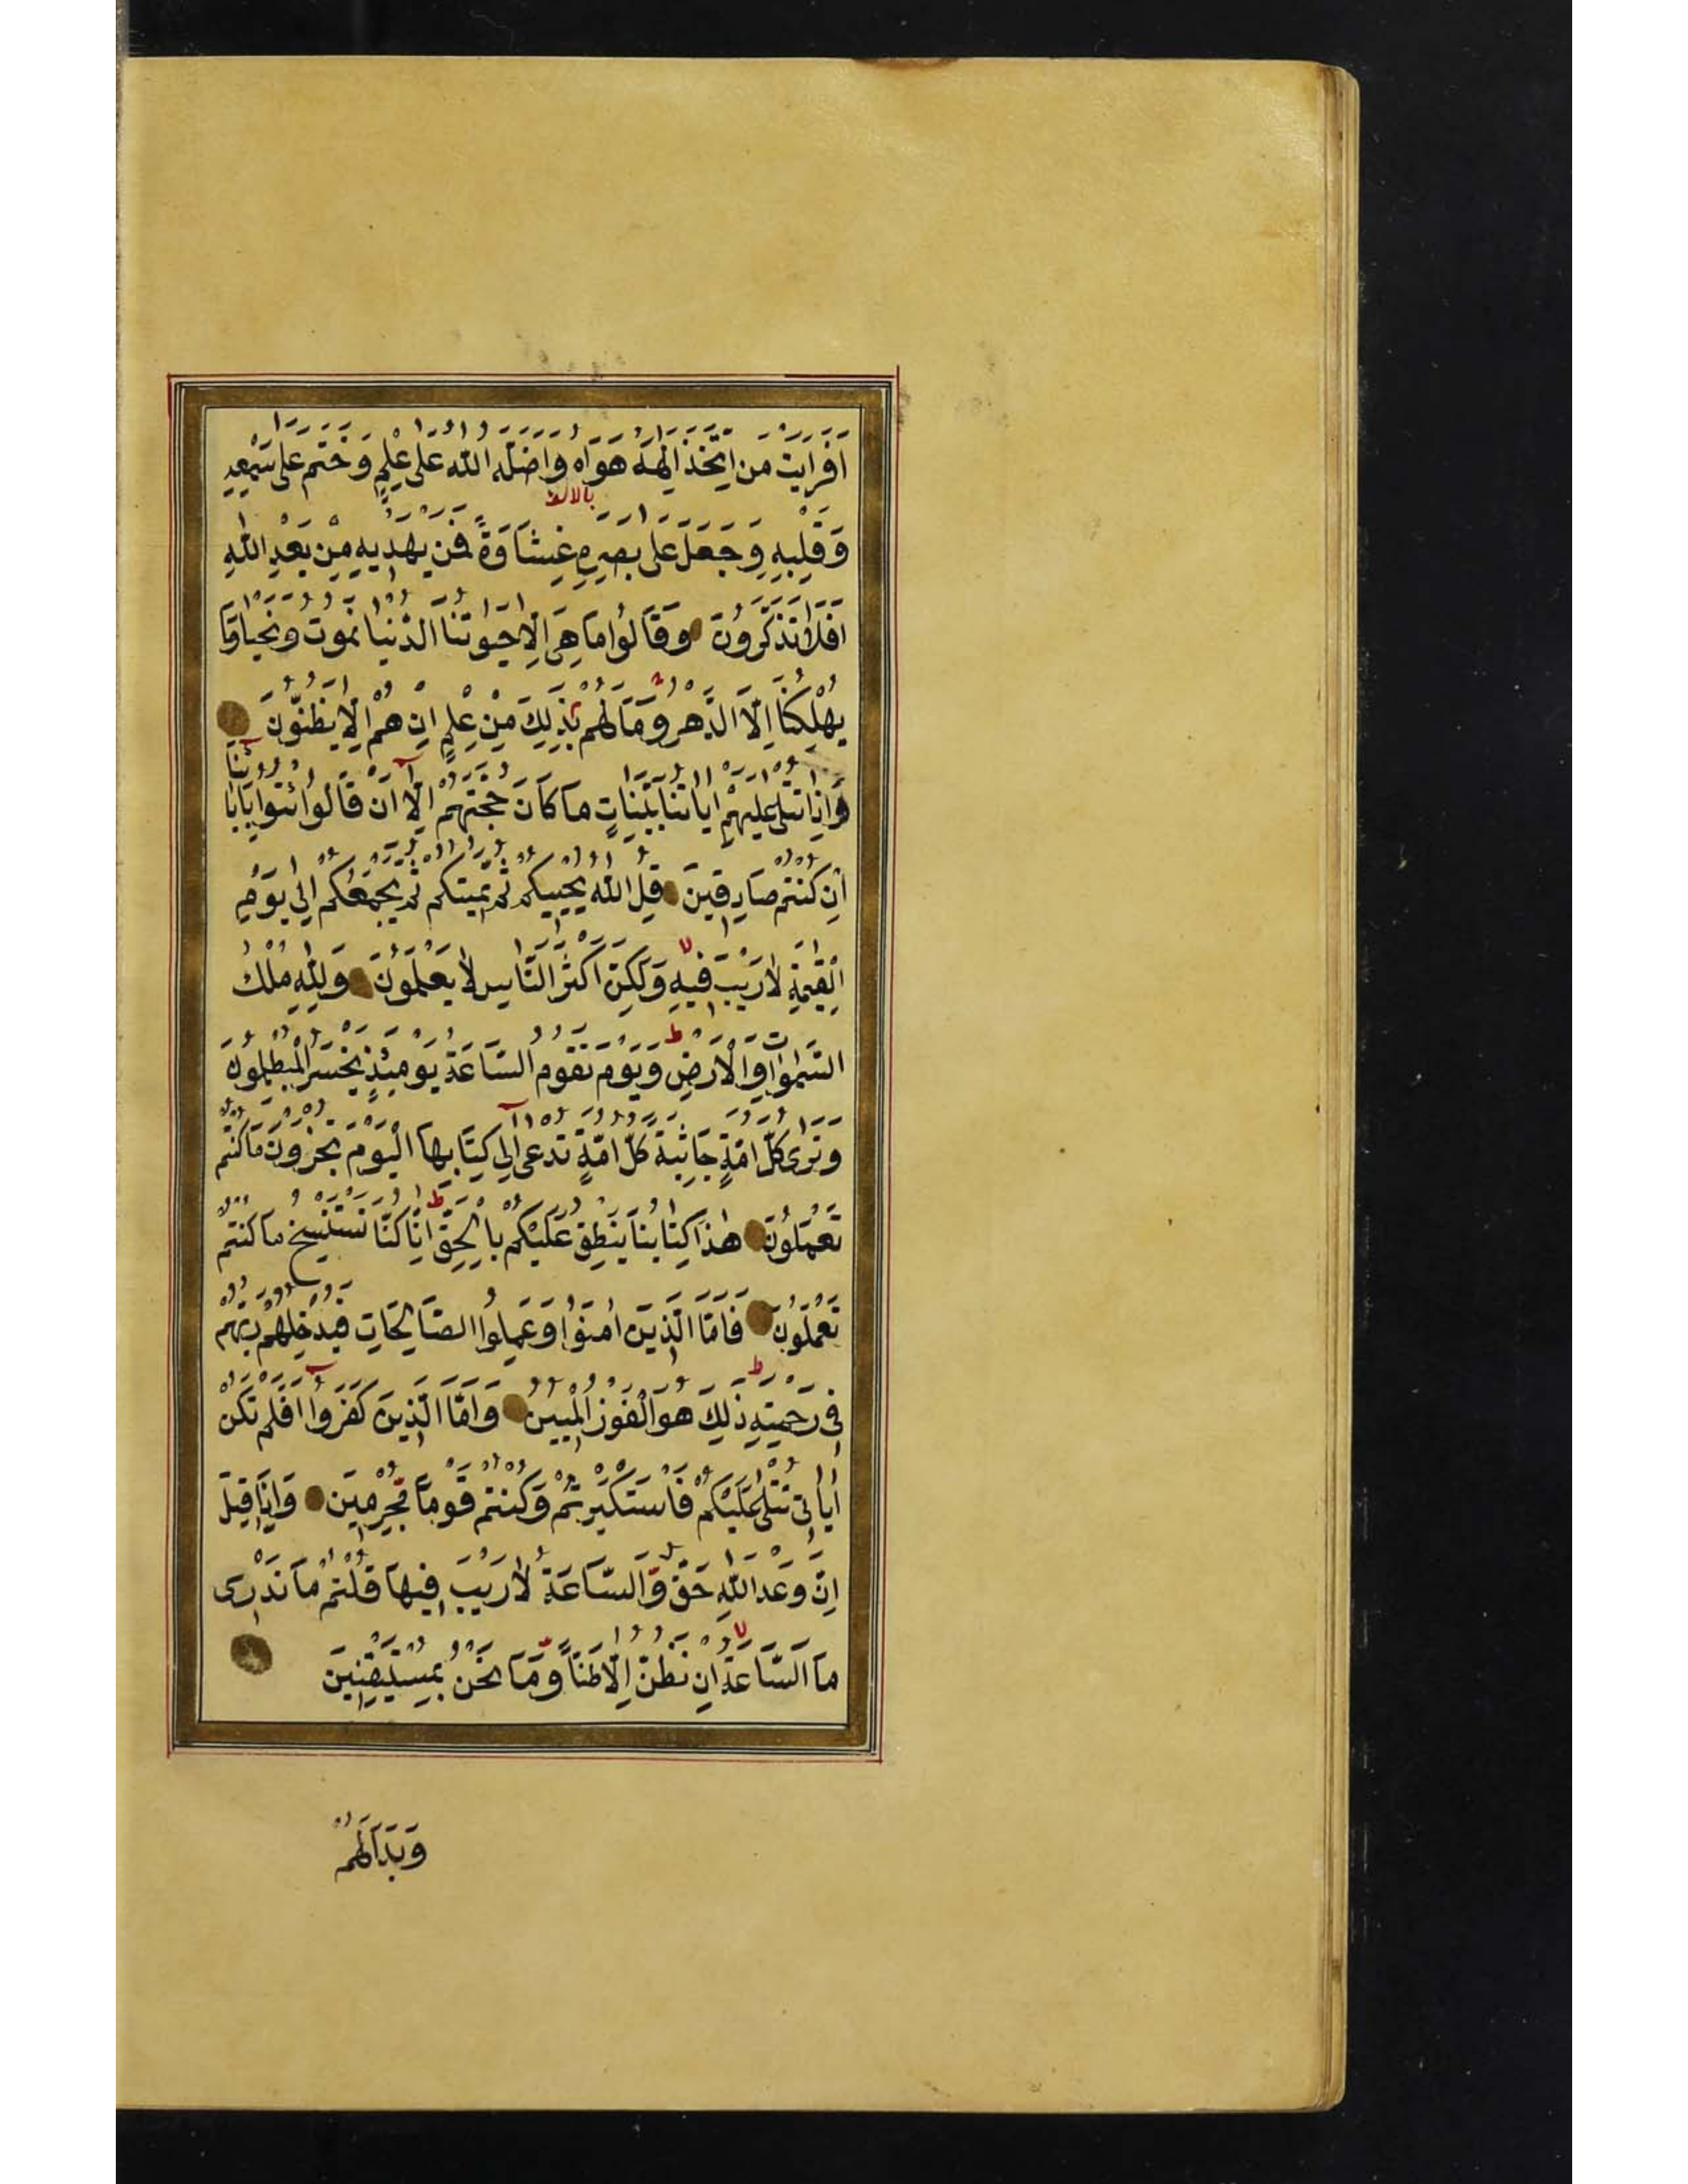 اَفَرَاَيْتَ مَنِ اتَّخَذَ اِلٰهَهُ هَوَاهُ وَاَضَلَّهُ اللّٰهُ عَلٰى عِلْمٍ وَخَتَمَ عَلٰى سَمْعِهِ
بالالف
وَقَلْبِهِ وَجَعَلَ عَلٰى بَصَرِهِ غِشَاوَةً فَمَنْ يَهْدِيهِ مِنْ بَعْدِ اللّٰهِ
اَفَلَا تَذَكَّرُونَ وَقَالُوا مَا هِىَ اِلَّا حَيٰوتُنَا الدُّنْيَا نَمُوتُ وَنَحْيَا وَمَا
يُهْلِكُنَا اِلَّا الدَّهْرُ وَمَا لَهُمْ بِذٰلِكَ مِنْ عِلْمٍ اِنْ هُمْ اِلَّا يَظُنُّونَ
وَاِذَا تُتْلٰى عَلَيْهِمْ اٰيَاتُنَا بَيِّنَاتٍ مَا كَانَ حُجَّتَهُمْ اِلَّا اَنْ قَالُوا ائْتُوا بِاٰبَائِنَا
اِنْ كُنْتُمْ صَادِقِينَ قُلِ اللّٰهُ يُحْيِيكُمْ ثُمَّ يُمِيتُكُمْ ثُمَّ يَجْمَعُكُمْ اِلٰى يَوْمِ
الْقِيٰمَةِ لَا رَيْبَ فِيهِ وَلٰكِنَّ اَكْثَرَ النَّاسِ لَا يَعْلَمُونَ وَلِلّٰهِ مُلْكُ
السَّمٰوَاتِ وَالْاَرْضِ وَيَوْمَ تَقُومُ السَّاعَةُ يَوْمَئِذٍ يَخْسَرُ الْمُبْطِلُونَ
وَتَرٰى كُلَّ اُمَّةٍ جَاثِيَةً كُلُّ اُمَّةٍ تُدْعٰى اِلٰى كِتَابِهَا اَلْيَوْمَ تُجْزَوْنَ مَا كُنْتُمْ
تَعْمَلُونَ هٰذَا كِتَابُنَا يَنْطِقُ عَلَيْكُمْ بِالْحَقِّ اِنَّا كُنَّا نَسْتَنْسِخُ مَا كُنْتُمْ
تَعْمَلُونَ فَاَمَّا الَّذِينَ اٰمَنُوا وَعَمِلُوا الصَّالِحَاتِ فَيُدْخِلُهُمْ رَبُّهُمْ
فِى رَحْمَتِهِ ذٰلِكَ هُوَ الْفَوْزُ الْمُبِينُ وَاَمَّا الَّذِينَ كَفَرُوا اَفَلَمْ تَكُنْ
اٰيَاتِى تُتْلٰى عَلَيْكُمْ فَاسْتَكْبَرْتُمْ وَكُنْتُمْ قَوْمًا مُجْرِمِينَ وَاِذَا قِيلَ
اِنَّ وَعْدَ اللّٰهِ حَقٌّ وَالسَّاعَةُ لَا رَيْبَ فِيهَا قُلْتُمْ مَا نَدْرِى
مَا السَّاعَةُ اِنْ نَظُنُّ اِلَّا ظَنًّا وَمَا نَحْنُ بِمُسْتَيْقِنِينَ
وَبَدَا لَهُمْ